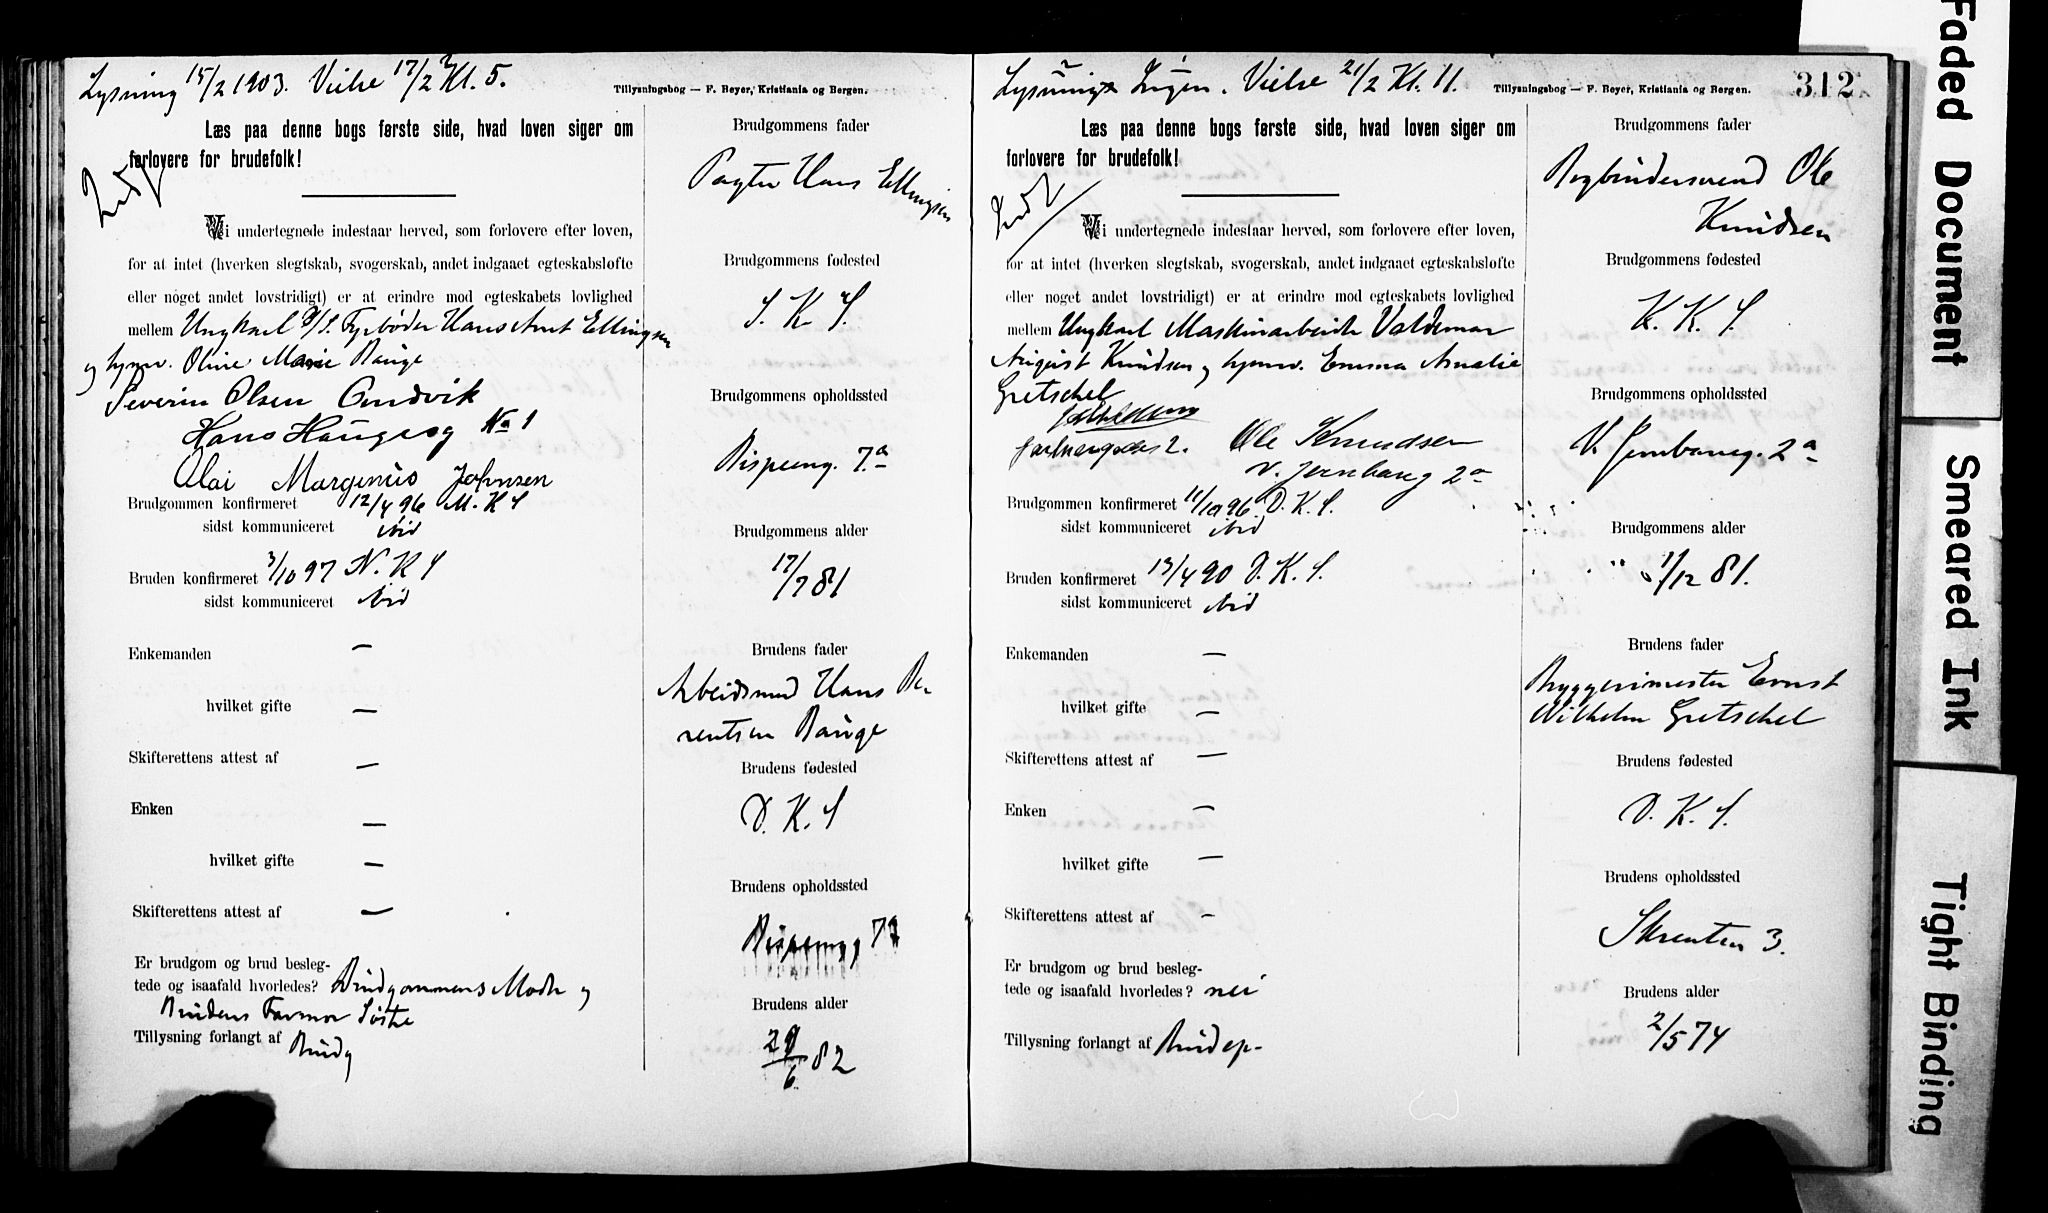 Lysning 15/2 1903. Vielse 17/2 Kl. 5.
Tillysningsbog — F. Beyer, Kristiania og Bergen.
Læs paa denne bogs første side, hvad loven siger om
forlovere for brudefolk!
Vi undertegnede indestaar herved, som forlovere efter loven,
for at intet (hverken slegtskab, svogerskab, andet indgaaet egteskabsløfte
eller noget andet lovstridigt) er at erindre mod egteskabets lovlighed
mellem Ungkarl D/S. Fyrbøder Hans Arnt Ellingsen
og tynv. Oline Marie Bauge
Severin Olsen Andvik
Hans Haugesg No 1
Olai Marginus Johnsen
Brudgommen konfirmeret 12/4 96 M. K S
sidst kommuniceret ibid
Bruden konfirmeret 3/10 97 N. K S
sidst kommuniceret ibid
Enkemanden —
hvilket gifte —
Skifterettens attest af —
Enken —
hvilket gifte —
Skifterettens attest af —
Er brudgom og brud besleg-
tede og isaafald hvorledes? Brudgommens Moder og
Brudens Farmor Søstre
Tillysning forlangt af Brudg
Brudgommens fader
Pagter Hans Ellingsen
Brudgommens fødested
S. K. S.
Brudgommens opholdssted
Bispeeng. 7a
Brudgommens alder
17/7 81
Brudens fader
Arbeidsmand Hans Be-
rentsen Bauge
Brudens fødested
D. K. S
Brudens opholdssted
Bispeeng 7a
Brudens alder
29/6 82
Lysning Ingen. Vielse 21/2 Kl. 11.
Tillysningsbog — F. Beyer, Kristiania og Bergen.
312
Læs paa denne bogs første side, hvad loven siger om
forlovere for brudefolk!
Vi undertegnede indestaar herved, som forlovere efter loven,
for at intet (hverken slegtskab, svogerskab, andet indgaaet egteskabsløfte
eller noget andet lovstridigt) er at erindre mod egteskabets lovlighed
mellem Ungkarl Maskinarbeider Valdemar
August Knudsen og tynv. Emma Amalie
Gretschel
Ole Knudsen
V. Jernbaneg 2a
Brudgommen konfirmeret 11/10 96 D. K. S.
sidst kommuniceret ibid
Bruden konfirmeret 13/4 90 D. K. S.
sidst kommuniceret ibid
Enkemanden —
hvilket gifte —
Skifterettens attest af —
Enken —
hvilket gifte —
Skifterettens attest af —
Er brudgom og brud besleg-
tede og isaafald hvorledes? nei
Tillysning forlangt af Brudep-
Brudgommens fader
Bogbindersvend Ole
Knudsen
Brudgommens fødested
K. K. S.
Brudgommens opholdssted
V. Jernbaneg. 2a
Brudgommens alder
1/12 81.
Brudens fader
Bryggerimester Ernst
Wilhelm Gretschel
Brudens fødested
D. K. S.
Brudens opholdssted
Skrenten 3.
Brudens alder
2/5 74
Faded Document
Smeared Ink
Tight Binding